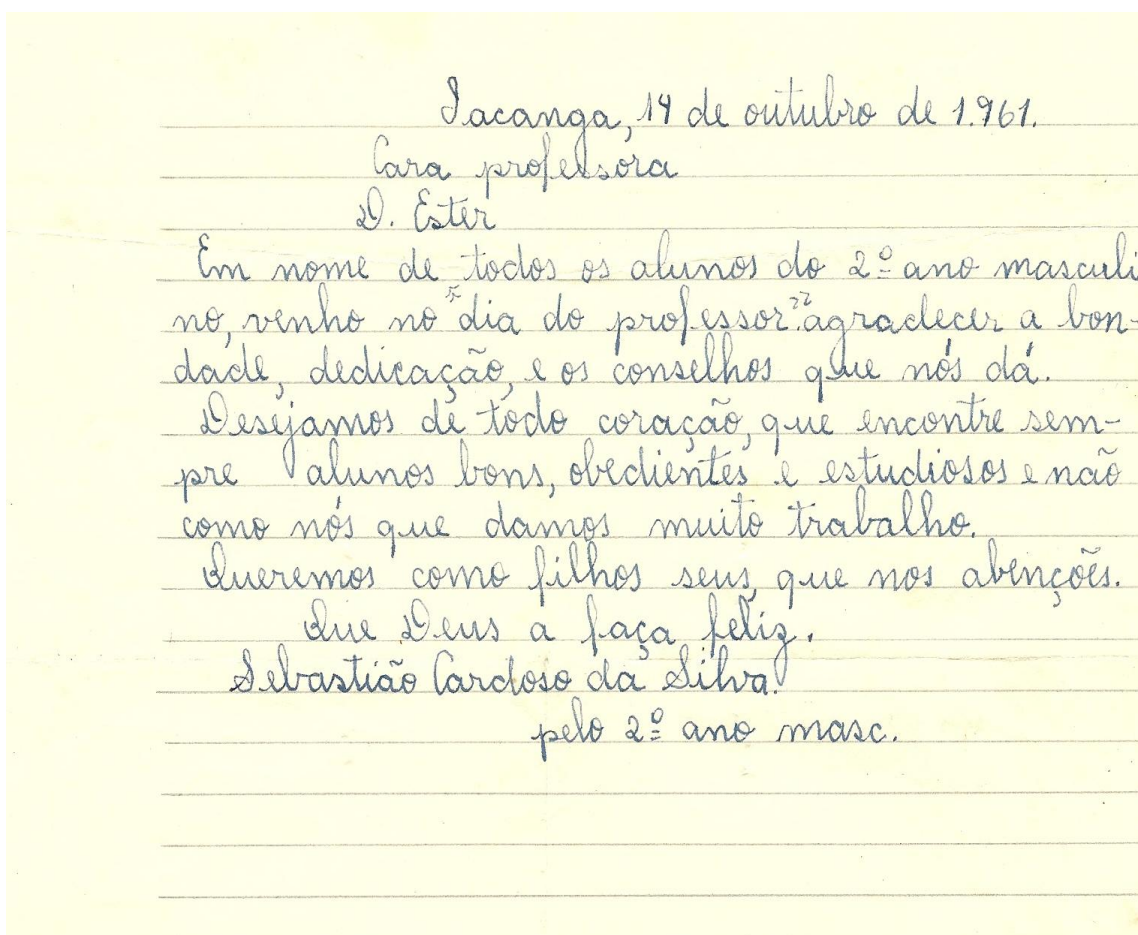 Iacanga, 14 de outubro de 1.961.
Cara professora
D. Ester
Em nome de todos os alunos do 2º ano masculi
no, venho no "dia do professor" agradecer a bon-
dade, dedicação, e os conselhos que nós dá.
Desejamos de todo coração, que encontre sem-
pre alunos bons, obedientes e estudiosos e não
como nós que damos muito trabalho.
Queremos como filhos seus, que nos abenções.
Que Deus a faça feliz.
Sebastião Cardoso da Silva.
pelo 2º ano masc.